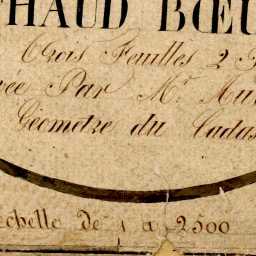 THAUD BŒU
Trois Feuilles 2
ée Par Mr. Au
Géometre du Cadas
chelle de 1 a 2500